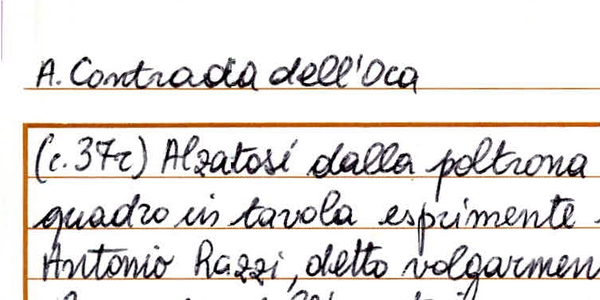 A. Contrada dell'Oca
(c. 37r) Alzatosi dalla poltrona
quadro in tavola esprimente
Antonio Razzi, detto volgarmen